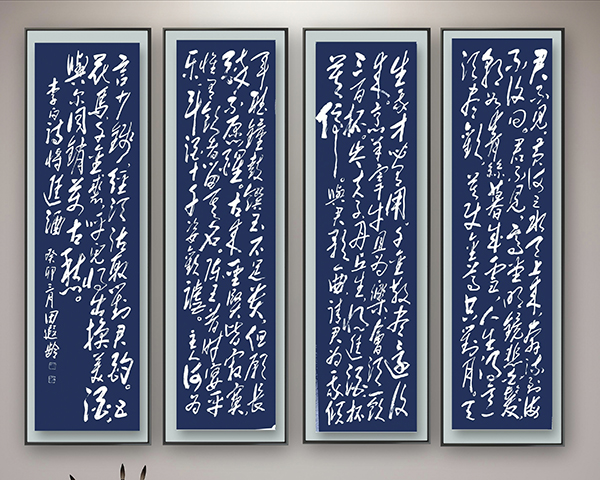 君不见黄河之水天上来奔流到海
不復回。君不见高堂明镜悲白髮
朝如青丝暮成雪人生得意
须尽歡莫使金尊空對月天
生我才必有用千金散尽還復
来。烹羊宰牛且為樂會須一飲
三百杯。岑夫子丹丘生将进酒杯
莫停。與君歌一曲请君为我倾
耳听鐘鼓饌玉不足贵但願長
醉不願醒。古来聖賢皆寂寞
惟有飲者留其名陈王昔时宴平
乐斗酒十千恣歡謔。主人何为
言少錢径须沽取對君酌。五
花馬千金裘呼兒将出换美酒
與尔同銷萬古愁。
李白诗将進酒 癸卯三月田遐龄